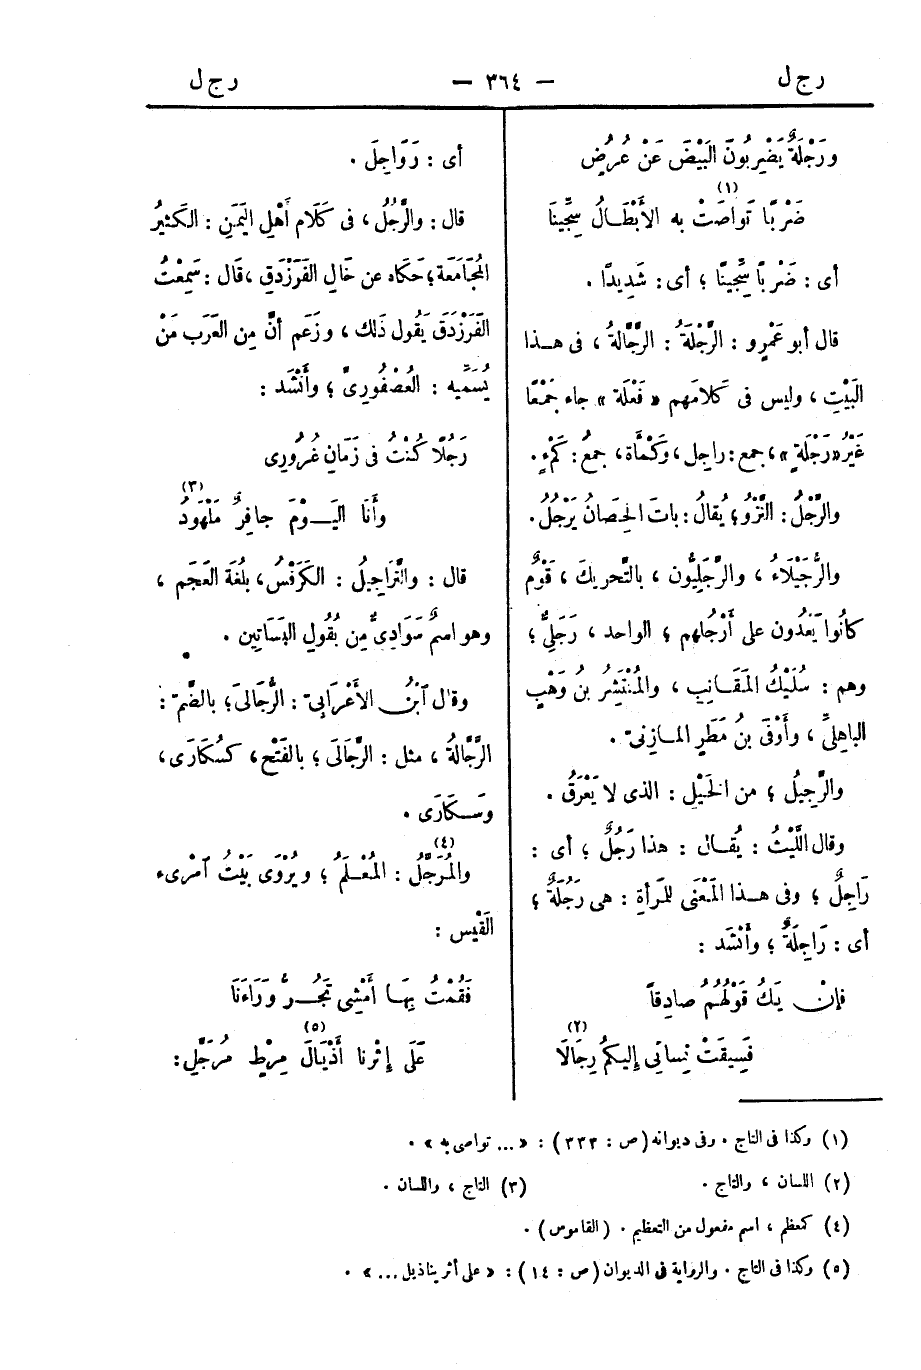 رج ل — ٣٦٤ — رج ل
ورَجْلَةٌ يَضْرِبُونَ البَيْضَ عَنْ عُرُضٍ
ضَرْبًا تَواصَتْ به الأَبْطَـالُ سِجِّينَا (١)
أى : ضَرْبًا سِجِّينًا ؛ أى : شَدِيدًا .
قال أبو عَمْرِو : الرَّجْلَةُ : الرَّجَّالةُ ، فى هــذا
البَيْتِ ، وليس فى كَلامَهم « فَعْلَة » جاء جَمْعًا
غَيْرُ «رَجْلَةٍ» ، جمع : راجل ، وكَمْأَة ، جمعُ : كَمْءٍ .
والرَّجْلُ : النَّزْوُ ؛ يُقالُ : باتَ الحِصَانُ يَرْجُلُ .
والرُّجَيْلَاءُ ، والرَّجَلِيُّون ، بالتَّحريك ، قَوْمٌ
كانُوا يَعْدُون على أَرْجُلهم ؛ الواحد ، رَجَلِيٌّ ؛
وهم : سُلَيْكُ المَقَانِب ، والمُنْتَشِرُ بنُ وَهْبٍ
الباهِلىّ ، وأَوْفَى بنُ مَطَرٍ المـازِنىّ .
والرَّجِيلُ ؛ من الخَيْلِ : الذى لا يَعْرَقُ .
وقال اللَّيْثُ : يُقـالُ : هذا رَجُلٌ ؛ أى :
رَاجِلٌ ؛ وفى هــذا المَعْنَى للمَرأةِ : هى رَجُلَةٌ ؛
أى : رَاجِلَةٌ ؛ وأَنْشَد :
فإنْ يَكُ قَوْلُهُمُ صادِقاً
فَسِيقَتْ نِسائى إليكمُ رِجَالَا (٢)
أى : رَوَاجِلَ .
قال : والرَّجُلُ ، فى كَلَام أَهْلِ اليَمَنِ : الكَثيرُ
المُجَامَعَة ؛ حَكَاه عن خَالِ الفَرَزْدَقِ ، قَال : سَمِعْتُ
الفَرَزْدَقَ يَقُول ذَلك ، وزَعَم أنَّ مِن العَرَب مَنْ
يُسَمِّيه : العُصْفُورِىَّ ؛ وأَنْشَد :
رَجُلًا كُنْتُ فى زَمَانِ غُرُورِى
وأَنَا اليَــوْمَ جافِرٌ مَلْهُودُ (٣)
قال : والتَّرَاجِيلُ : الكَرَفْسُ ، بلُغَة العَجَم ،
وهو اسمٌ سَوَادِىٌّ مِن بُقُولِ البَسَاتِين .
وقال ٱبْنُ الأَعْرَابىّ : الرُّجَالَى ؛ بالضَّمّ :
الرَّجَّالةُ ، مثل : الرَّجَالَى ؛ بالفَتْح ، كسُكَارَى ،
وسَـكَارَى .
والمُرَجَّلُ (٤) : المُعْلَمُ ؛ ويُرْوَى بَيْتُ ٱمْرِىء
القَيْس :
فَقُمْتُ بِهَـا أَمْشِى تَجُـرُّ وَرَاءَنَا
عَلَى إثْرِنا أَذْيَالَ مِرْطٍ مُرَجَّلِ (٥) :
(١) وكذا فى التاج . وفى ديوانه (ص : ٣٣٣) : « ... تواصى به » .
(٢) اللسان ، والتاج . (٣) التاج ، واللسان .
(٤) كمعظم ، اسم مفعول من التعظيم . (القاموس) .
(٥) وكذا فى التاج . والرواية فى الديوان (ص : ١٤) : « على أثرينا ذيل ... » .